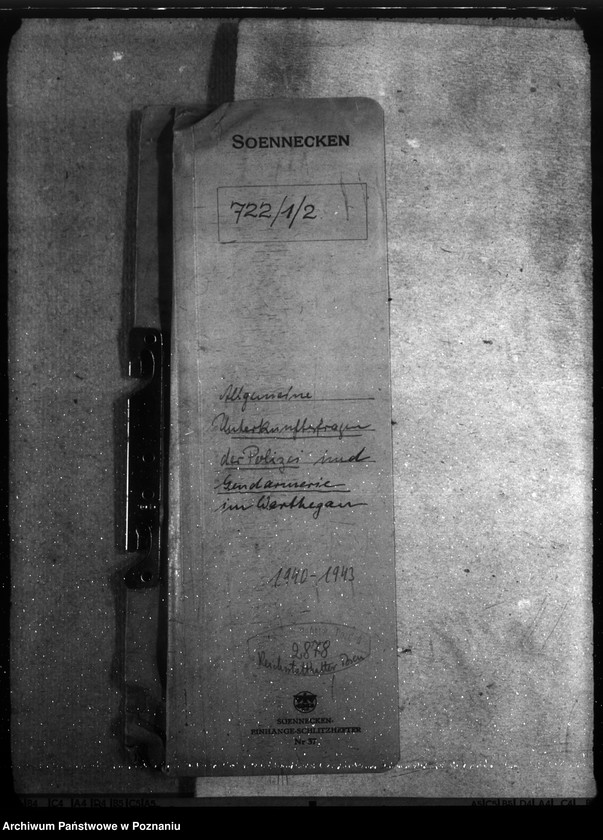 SOENNECKEN
722/1/2
Allgemeine
Unterkunftsfragen
der Polizei und
Gendarmerie
im Warthegau
1940-1943
2878
Reichsstatthalter Posen
SOENNECKEN-
EINHÄNGE-SCHLITZHEFTER
Nr 37
Archiwum Państwowe w Poznaniu